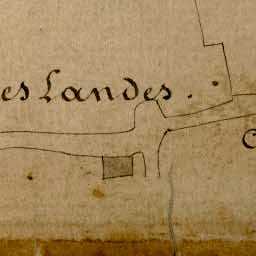 es Landes.